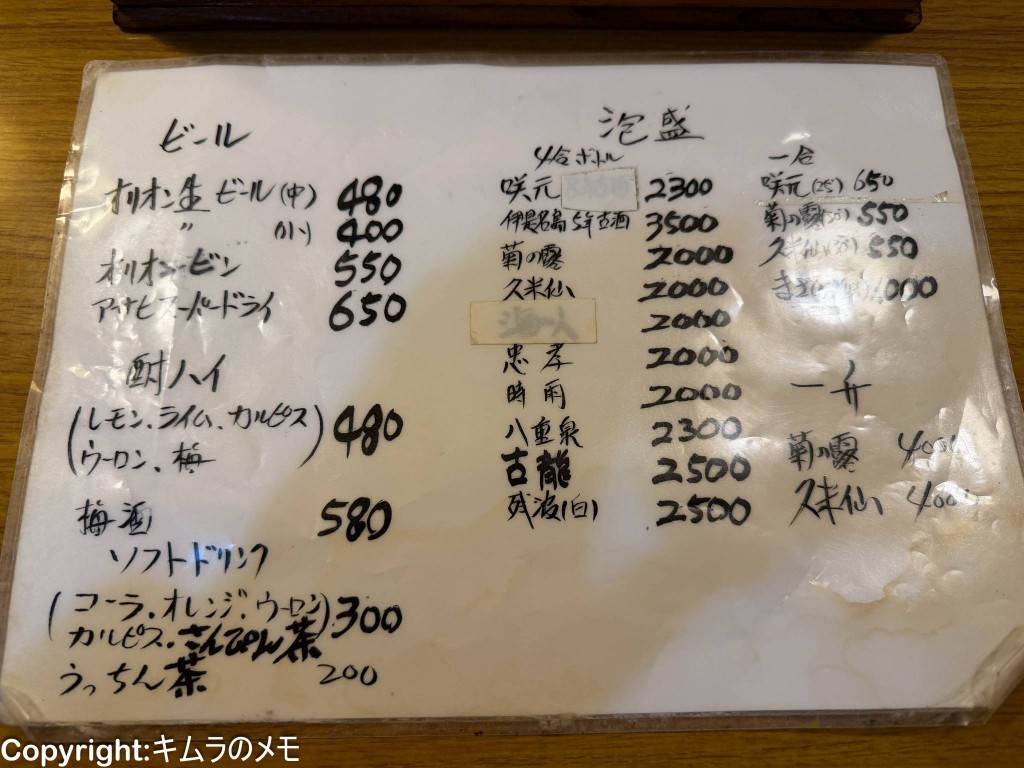 ビール
オリオン生ビール(中) 480
〃 (小) 400
オリオンビン 550
アサヒスーパードライ 650
酎ハイ
(レモン、ライム、カルピス
ウーロン、梅) 480
梅酒 580
ソフトドリンク
(コーラ、オレンジ、ウーロン)
カルピス、さんぴん茶 300
うっちん茶 200
泡盛
4合ボトル
咲元 2300
伊是名島5年古酒 3500
菊の露 2000
久米仙 2000
2000
忠孝 2000
時雨 2000
八重泉 2300
古龍 2500
残波(白) 2500
一合
咲元(25) 650
菊の露 550
久米仙 550
1000
一升
菊の露 4000
久米仙 400
Copyright:キムラのメモ